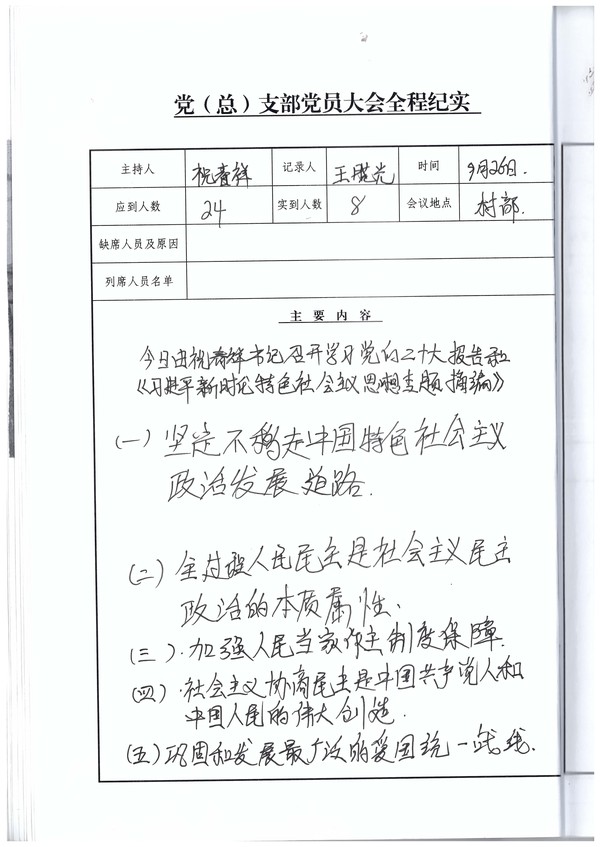 党（总）支部党员大会全程纪实
主持人 祝春祥 记录人 王 光 时间 9月26日.
应到人数 24 实到人数 8 会议地点 村部.
缺席人员及原因
列席人员名单
主要内容
今日由祝春祥书记召开学习党的二十大报告和
《习近平新时代特色社会主义思想专题摘编》
（一）坚定不移走中国特色社会主义
政治发展道路.
（二）全过程人民民主是社会主义民主
政治的本质属性.
（三）.加强人民当家作主制度保障.
（四）.社会主义协商民主是中国共产党人和
中国人民的伟大创造.
（五）巩固和发展最广泛的爱国统一战线.